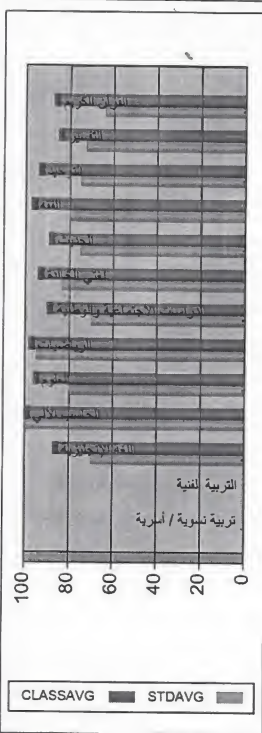 القرآن الكريم
التفسير
التوحيد
الفقه
الحديث
الدراسات الاجتماعية والوطنية
الرياضيات
العلوم
الحاسب الآلي
اللغة الإنجليزية
التربية الفنية
تربية نسوية / أسرية
100
80
60
40
20
0
CLASSAVG
STDAVG